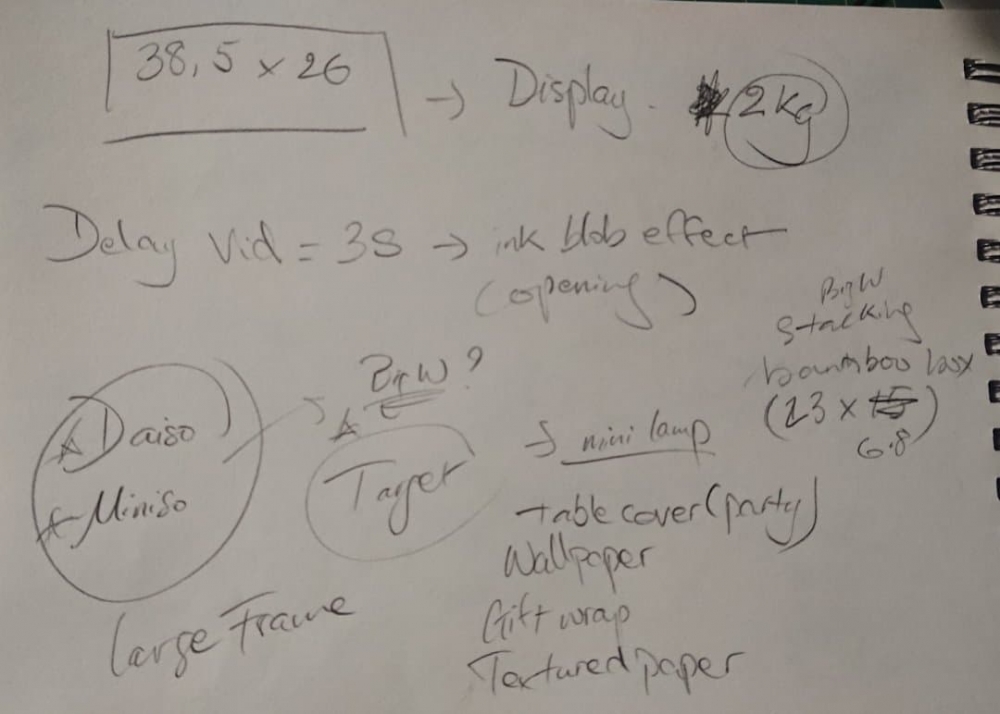 38,5 x 26 → Display. 2kg
Delay Vid = 3s → ink blob effect
(opening)
Big W
Stacking
bamboo box
(23 x 15)
6.8
Daiso
Miniso
Big W?
Target
→ mini lamp
table cover (party)
Wallpaper
Gift wrap
Textured paper
Large Frame